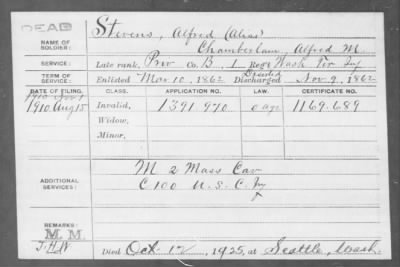 DEAD
NAME OF SOLDIER: Stevens, Alfred (Alias)
Chamberlain, Alfred M.
SERVICE: Late rank, Priv Co. B. 1 Reg't Wash Ter Inf
TERM OF SERVICE: Enlisted Mar 10, 1862 Discharged Nov. 9, 1862
Deserted
DATE OF FILING. CLASS. APPLICATION NO. LAW. CERTIFICATE NO.
1910 Aug 15 Invalid, 1391.970 1169.689
Widow,
Minor,
ADDITIONAL SERVICES: M 2 Mass Cav
C 100 U.S.C. Inf
REMARKS:
M. M. Died Oct 12, 1925, at Seattle, Wash.